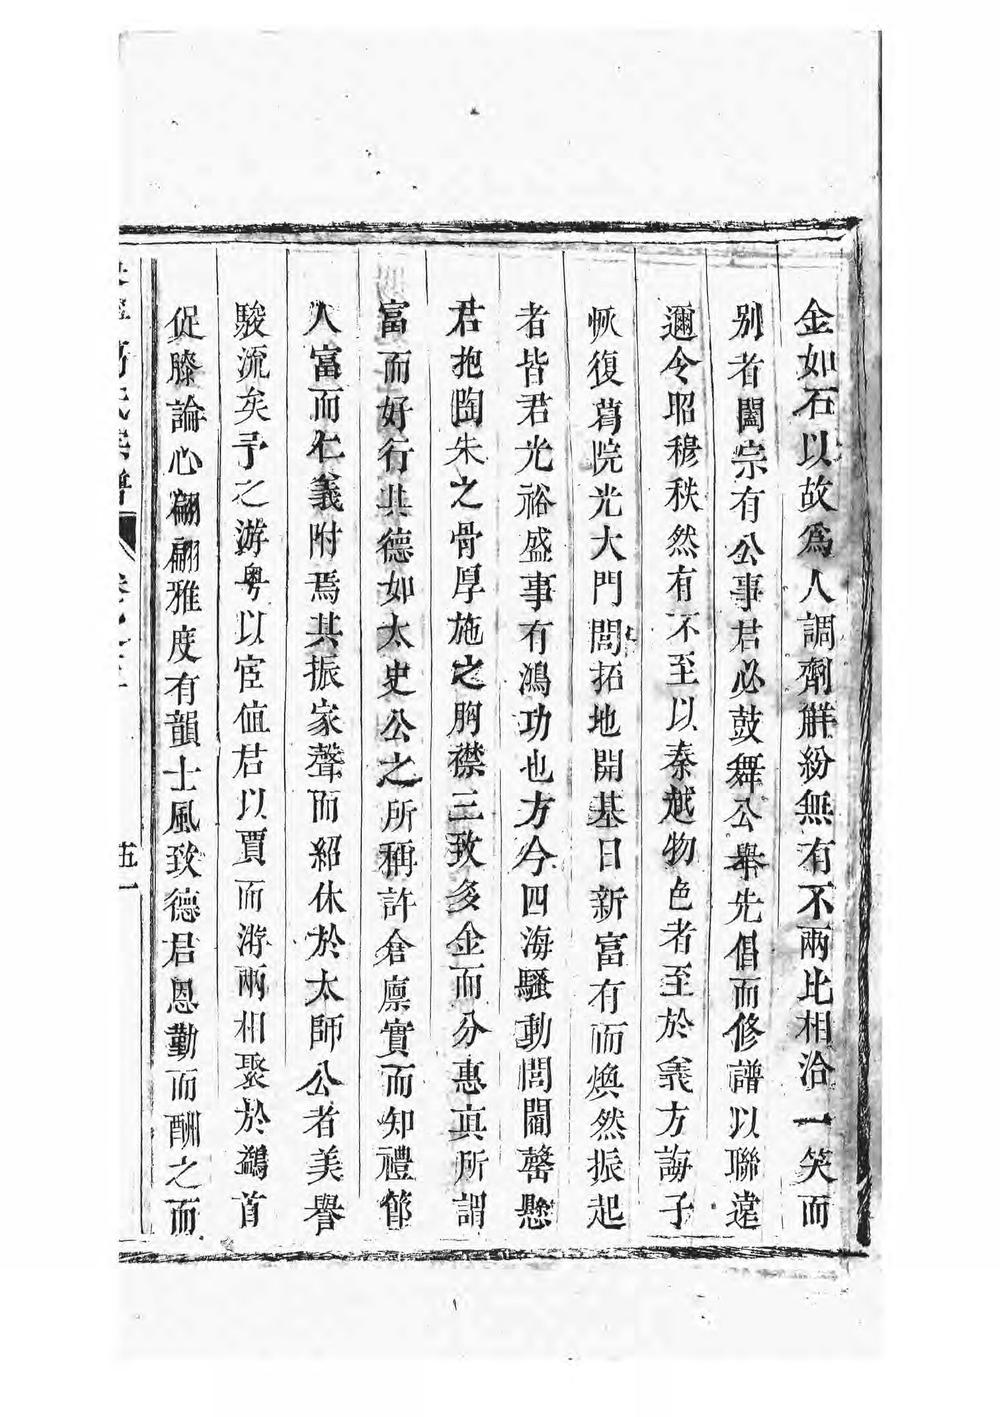 金如石以故爲人調劑觧紛無有不兩比相洽一笑而
别者闔宗有公事君必鼓舞公舉先倡而修譜以聯遠
邇令昭穆秩然有不至以秦越物色者至於義方誨子
恢復舊院光大門閭拓地開基日新富有而煥然振起
者皆君光裕盛事有鴻功也方今四海騷動閭閻罄懸
君抱陶朱之骨厚施之胸襟三致多金而分惠眞所謂
富而好行其德如太史公之所稱許倉廪實而知禮節
人富而仁義附焉其振家聲而紹休於太師公者美譽
駿流矣予之游粤以宦值君以賈而游兩相聚於鷁首
促膝論心翩翩雅度有韻士風致德君恩勤而酬之而
氏宗譜 卷之 五一